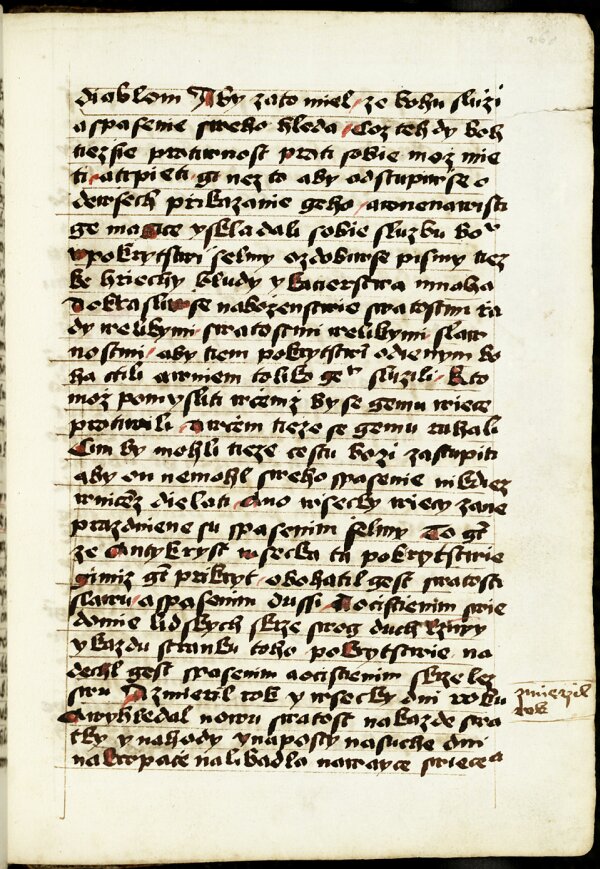 diablem Aby zato miel ze bohu sluzi
aspasenie sweho hleda Coz tehdy boh
tiezsie protiwnost proti sobie moz mie
ti atrpieti gi nez to aby odstupiwse o
dewsech prikazanie geho awnenawisti
ge magice yskladali sobie sluzbu bo
wpokrytstwi selmy ozdobiwse pismy tiez
ke hriechy bludy ykacierstwa mnoha
Dokrasliwse nabozenstwie swatostmi rza
dy welikymi swatostmi welikymi slaw
nostmi aby tiem pokrytstwi odienym bo
ha ctili awniem toliko slúzili kto
moz pomysliti wczemz by se gemu wiece
protiwili Awczem tieze se gemu ruhali
Cim by mohli tieze cestu bozi zastupiti
aby on nemohl sweho spasenie nikdiez
wniczemz dielati Ano wsecky wiecy zane
prazdniene su spasenim selmy To gt
ze Antykryst wsecka ta pokrytstwie
gimiz gt prikryt obohatil gest swatosti
slawu aspasenim dussi Aocistienim swie
domie lidskych skrze swog duch kziwy
ykazdu stranku toho pokrytstwie na
dechl gest spasenim aocistienim skrze lez
swu Azmieril rok ywsecky dni roku
Awyhledal nowu swatost nakazde swa
tky ynahody ynaposty nasuche dni
nakropace nalibadla nawayce swiece
zmierzil
rok